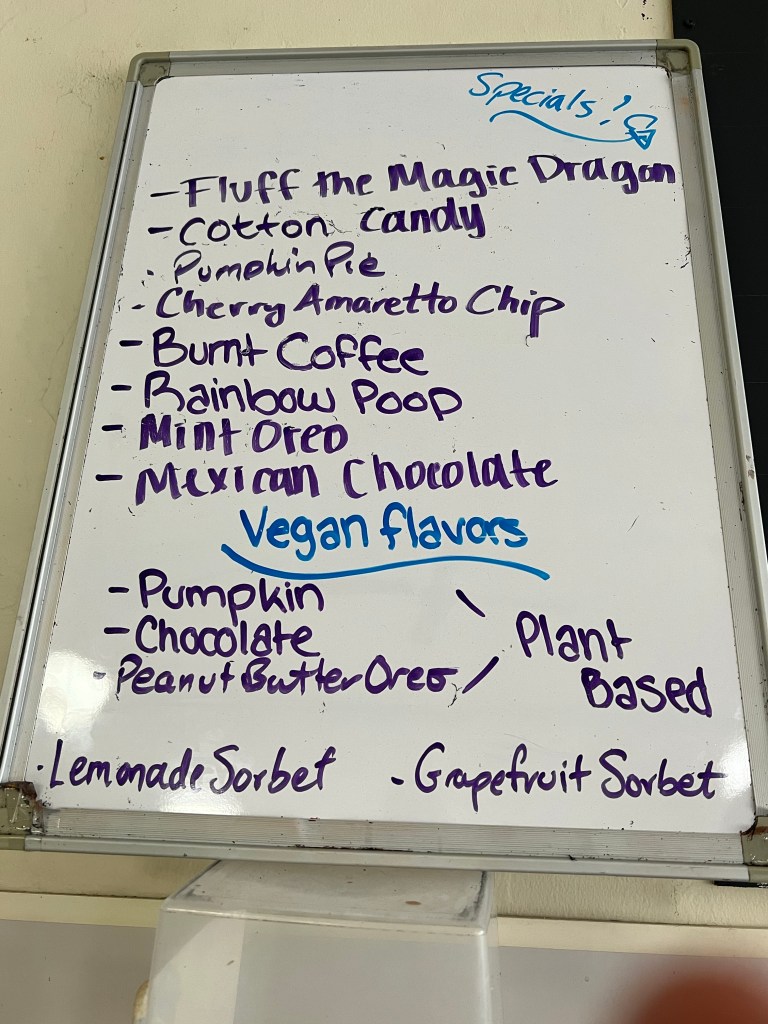 Specials!
- Fluff the Magic Dragon
- Cotton Candy
- Pumpkin Pie
- Cherry Amaretto Chip
- Burnt Coffee
- Rainbow Poop
- Mint Oreo
- Mexican Chocolate
Vegan flavors
- Pumpkin
- Chocolate
- Peanut Butter Oreo
Plant
Based
· Lemonade Sorbet
- Grapefruit Sorbet